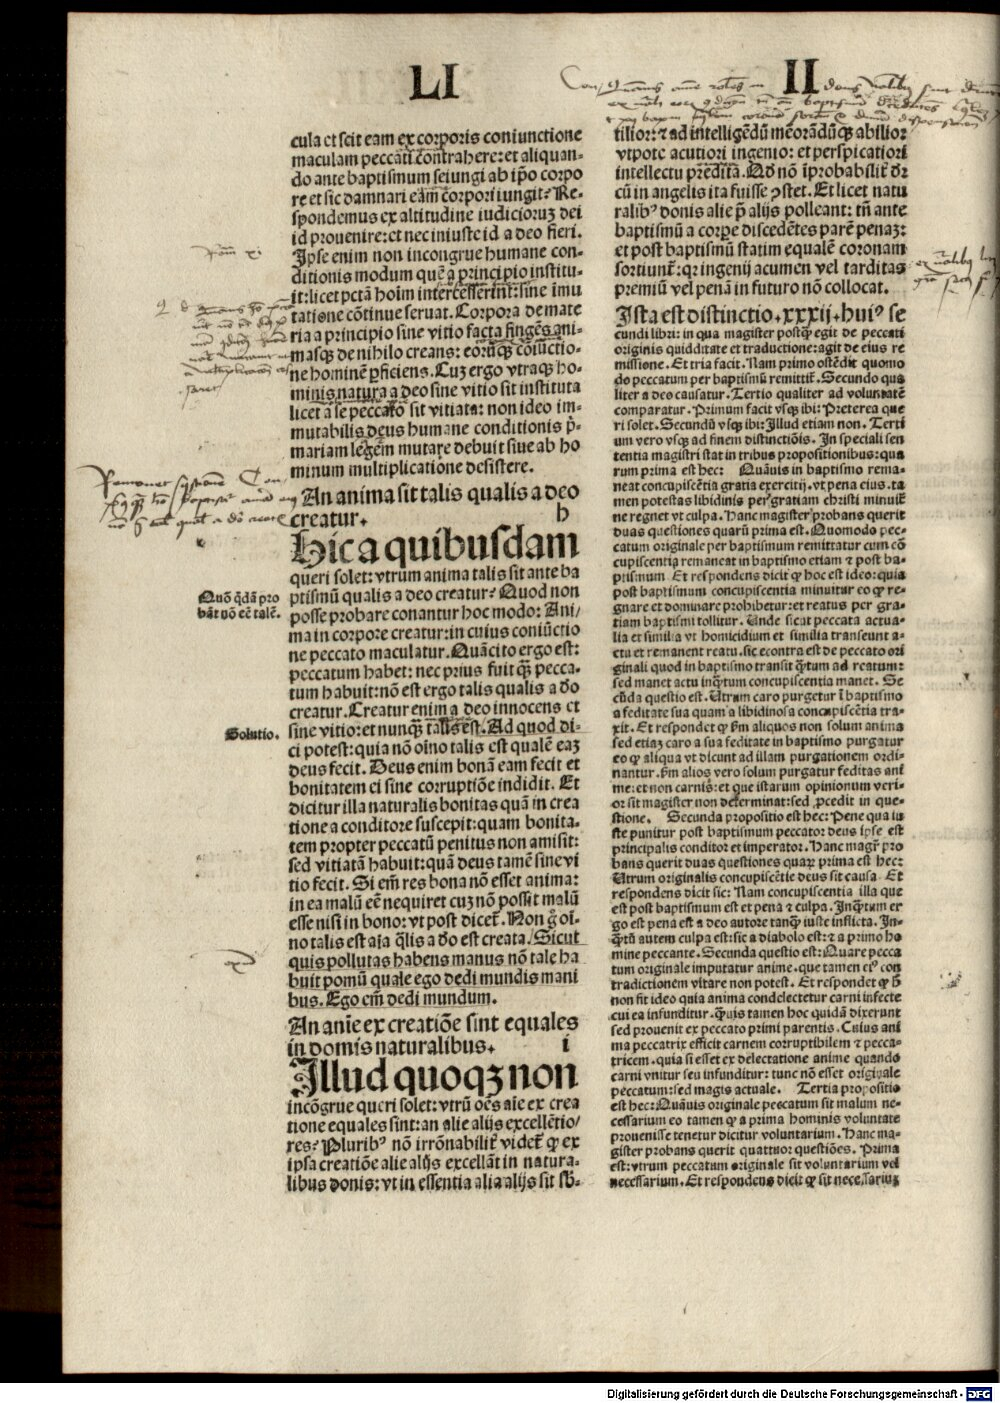 LI
II
cula et scit eam ex corporis coniunctione
maculam peccati contrahere: et aliquan-
do ante baptismum seiungi ab ip̄o corpo
re et sic damnari eam corpori iungit? Re-
spondemus ex altitudine iudicioruʒ dei
id prouenire: et nec iniuste id a deo fieri.
Ipse enim non incongrue humane con-
ditionis modum quē a principio institu-
it: licet pctā hoīm intercesserint: sine īmu
tatione cōtinue seruat. Corpora de mate
ria a principio sine vitio facta fingēs ani-
masqꝫ de nihilo creans: eorūqꝫ cōiūctio-
ne hominē ꝑficiens. Cuʒ ergo vtraqꝫ ho-
minis natura a deo sine vitio sit instituta
licet a se peccatō sit vitiata: non ideo im-
mutabilis deus humane conditionis p̄-
mariam legem mutare debuit siue ab ho
minum multiplicatione desistere.
An anima sit talis qualis a deo
creatur. h
Hic a quibusdam
queri solet: vtrum anima talis sit ante ba
ptismū qualis a deo creatur? Quod non
posse probare conantur hoc modo: Ani-
ma in corpore creatur: in cuius coniūctio
ne peccato maculatur. Quācito ergo est:
peccatum habet: nec prius fuit qꝫ̄ pecca-
tum habuit: nō est ergo talis qualis a dō
creatur. Creatur enim a deo innocens et
sine vitio: et nunqꝫ̄ talis est. Ad quod di-
ci potest: quia nō oīno talis est qualē eaʒ
deus fecit. Deus enim bonā eam fecit et
bonitatem ei sine corruptiōe indidit. Et
dicitur illa naturalis bonitas quā in crea
tione a conditore suscepit: quam bonita-
tem propter peccatū penitus non amisit:
sed vitiatā habuit: quā deus tamē sine vi
tio fecit. Si em̄ res bona nō esset anima:
in ea malū eē nequiret cuʒ nō possit malū
esse nisi in bono: vt post dicet̄. Non g̊ oī-
no talis est aīa q̄lis a dō est creata. Sicut
quis pollutas habens manus nō tale ha
buit pomū quale ego dedi mundis mani
bus. Ego em̄ dedi mundum.
An anīe ex creatiōe sint equales
in domis naturalibus. i
Illud quoqꝫ non
incōgrue queri solet: vtrū oēs aīe ex crea
tione equales sint: an alie alijs excellētio/
res? Pluribꝰ nō irrōnabilit̄ videt̄ ꝙ ex
ipsa creatiōe alie alijs excellāt in natura-
libus donis: vt in essentia alia alijs sit sb̄-
Quō q̄dā pro
bāt nō eē talē.
Solutio.
tilior: ⁊ ad intelligēdū meōrādūqꝫ abilior
vtpote acutiori ingenio: et perspicatiori
intellectu predita. Qd̄ nō īprobabilit̄ dr̄
cū in angelis ita fuisse ꝯstet. Et licet natu
ralibꝰ donis alie p̄ alijs polleant: tn̄ ante
baptismū a corpe discedētes parē penaʒ:
et post baptismū statim equalē coronam
sortiunt̄: qr ingenij acumen vel tarditas
premiū vel penā in futuro nō collocat.
Ista est distinctio .xxxij. huiꝰ se
cundi libri: in qua magister postqꝫ̄ egit de peccati
originis quidditate et traductione: agit de eius re
missione. Et tria facit. Nam primo ostēdit quomo
do peccatum per baptismū remittit̄. Secundo qua
liter a deo causatur. Tertio qualiter ad voluntatē
comparatur. Primum facit vsqꝫ ibi: Preterea que
ri solet. Secundū vsqꝫ ibi: Illud etiam non. Terti
um vero vsqꝫ ad finem distinctiōis. In speciali sen
tentia magistri stat in tribus propositionibus: qua
rum prima est hec: Quāuis in baptismo rema-
neat concupiscētia gratia exercitij. vt pena eius. ta-
men potestas libidinis per gratiam christi minuit̄
ne regnet vt culpa. Hanc magister probans querit
duas questiones quarū prima est. Quomodo pec-
catum originale per baptismum remittatur cum cō
cupiscētia remaneat in baptismo etiam ⁊ post ba-
ptismum Et respondens dicit ꝙ hoc est ideo: quia
post baptismum concupiscentia minuitur eo ꝙ re-
gnare et dominare prohibetur: et reatus per gra-
tiam baptismi tollitur. Unde sicut peccata actua-
lia et similia vt homicidium et similia transeunt a-
ctu et remanent reatu. sic econtra est de peccato ori
ginali quod in baptismo transit q̄tum ad reatum:
sed manet actu inq̄tum concupiscentia manet. Se
cūda questio est. Utrum caro purgetur ī baptismo
a feditate sua quam a libidinosa concupiscētia tra-
xit. Et respondet ꝙ ẜm aliquos non solum anima
sed etiaʒ caro a sua feditate in baptismo purgatur
eo ꝙ aliqua vt dicunt ad illam purgationem ordi-
nantur. ẜm alios vero solum purgatur feditas ani
me: et non carnis: et que istarum opinionum veri-
or sit magister non determinat: sed ꝓcedit in que-
stione. Secunda propositio est hec: Pene qua iu
ste punitur post baptismum peccator: deus ipse est
principalis conditor et imperator. Hanc magr̄ pro
bans querit duas questiones quaꝝ prima est hec:
Utrum originalis concupiscētie deus sit causa. Et
respondens dicit sic: Nam concupiscentia illa que
est post baptismum est et pena ⁊ culpa. Inq̄tum er
go est pena est a deo autore tanqꝫ̄ iuste inflicta. In-
q̄tū autem culpa est: sic a diabolo est: ⁊ a primo ho
mine peccante. Secunda questio est: Quare pecca
tum originale imputatur anime. que tamen eiꝰ con
tradictionem vitare non potest. Et respondet ꝙ h̄
non fit ideo quia anima condelectetur carni infecte
cui ea infunditur. q̄uis tamen hoc quidā dixerunt
sed prouenit ex peccato primi parentis. Cuius ani
ma peccatrix efficit carnem corruptibilem ⁊ pecca-
tricem. quia si esset ex delectatione anime quando
carni vnitur seu infunditur: tunc nō esset originale
peccatum: sed magis actuale. Tertia propositio
est hec: Quāuis originale peccatum sit malum ne-
cessarium eo tamen ꝙ a prima hominis voluntate
prouenisse tenetur dicitur voluntarium. Hanc ma-
gister probans querit quattuor questiōes. Prima
est: vtrum peccatum originale sit voluntarium vel
necessarium. Et respondens dicit ꝙ sit necessariuʒ
Digitalisierung gefördert durch die Deutsche Forschungsgemeinschaft - DFG